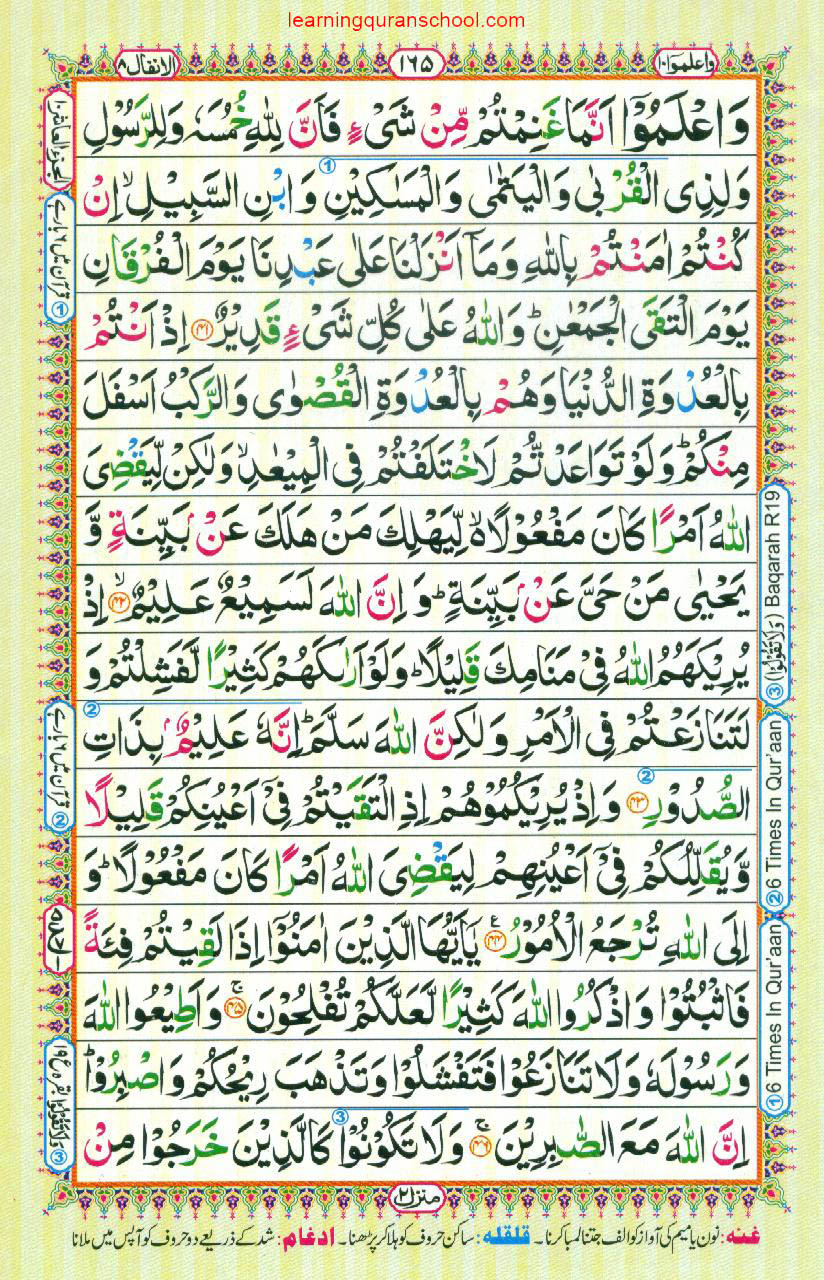 learningquranschool.com
واعلموا ١٠
١٦٥
الانفال ٨
وَاعْلَمُوْۤا اَنَّمَا غَنِمْتُمْ مِّنْ شَیْءٍ فَاَنَّ لِلّٰهِ خُمُسَهٗ وَلِلرَّسُوْلِ
وَلِذِی الْقُرْبٰی وَالْیَتٰمٰی وَالْمَسٰكِیْنِ وَابْنِ السَّبِیْلِ ۙ اِنْ
كُنْتُمْ اٰمَنْتُمْ بِاللّٰهِ وَمَاۤ اَنْزَلْنَا عَلٰی عَبْدِنَا یَوْمَ الْفُرْقَانِ
یَوْمَ الْتَقَی الْجَمْعٰنِ ؕ وَاللّٰهُ عَلٰی كُلِّ شَیْءٍ قَدِیْرٌ ﴿۴۱﴾ اِذْ اَنْتُمْ
بِالْعُدْوَةِ الدُّنْیَا وَهُمْ بِالْعُدْوَةِ الْقُصْوٰی وَالرَّكْبُ اَسْفَلَ
مِنْكُمْ ؕ وَلَوْ تَوَاعَدْتُّمْ لَاخْتَلَفْتُمْ فِی الْمِیْعٰدِ ۙ وَلٰكِنْ لِّیَقْضِیَ
اللّٰهُ اَمْرًا كَانَ مَفْعُوْلًا ۙ۬ لِّیَهْلِكَ مَنْ هَلَكَ عَنْۢ بَیِّنَةٍ وَّ
یَحْیٰی مَنْ حَیَّ عَنْۢ بَیِّنَةٍ ؕ وَ اِنَّ اللّٰهَ لَسَمِیْعٌ عَلِیْمٌ ﴿۴۲﴾ ۙ اِذْ
یُرِیْكَهُمُ اللّٰهُ فِیْ مَنَامِكَ قَلِیْلًا ؕ وَلَوْ اَرٰىكَهُمْ كَثِیْرًا لَّفَشِلْتُمْ وَ
لَتَنَازَعْتُمْ فِی الْاَمْرِ وَلٰكِنَّ اللّٰهَ سَلَّمَ ؕ اِنَّهٗ عَلِیْمٌۢ بِذَاتِ
الصُّدُوْرِ ﴿۴۳﴾ وَاِذْ یُرِیْكُمُوْهُمْ اِذِ الْتَقَیْتُمْ فِیْۤ اَعْیُنِكُمْ قَلِیْلًا
وَّیُقَلِّلُكُمْ فِیْۤ اَعْیُنِهِمْ لِیَقْضِیَ اللّٰهُ اَمْرًا كَانَ مَفْعُوْلًا ؕ وَ
اِلَی اللّٰهِ تُرْجَعُ الْاُمُوْرُ ﴿۴۴﴾ ع یٰۤاَیُّهَا الَّذِیْنَ اٰمَنُوْۤا اِذَا لَقِیْتُمْ فِئَةً
فَاثْبُتُوْا وَاذْكُرُوا اللّٰهَ كَثِیْرًا لَّعَلَّكُمْ تُفْلِحُوْنَ ﴿۴۵﴾ ۚ وَاَطِیْعُوا اللّٰهَ
وَرَسُوْلَهٗ وَلَا تَنَازَعُوْا فَتَفْشَلُوْا وَتَذْهَبَ رِیْحُكُمْ وَاصْبِرُوْا ؕ
اِنَّ اللّٰهَ مَعَ الصّٰبِرِیْنَ ﴿۴۶﴾ ۚ وَلَا تَكُوْنُوْا كَالَّذِیْنَ خَرَجُوْا مِنْ
① 6 Times In Qur'aan
② 6 Times In Qur'aan
③ (وَلَا تَقُوْلُوْا) Baqarah R19
الجزء العاشر ١٠
قرآن میں ٦ بار ہے ①
قرآن میں ٦ بار ہے ②
ولا تقولوا بقره ع ١٩ ③
منزل ٢
غنه: نون یا میم کی آواز کو الف جتنا لمبا کرنا۔ قلقله: ساکن حروف کو ہلا کر پڑھنا۔ ادغام: شد کے ذریعے دو حروف کو آپس میں ملانا